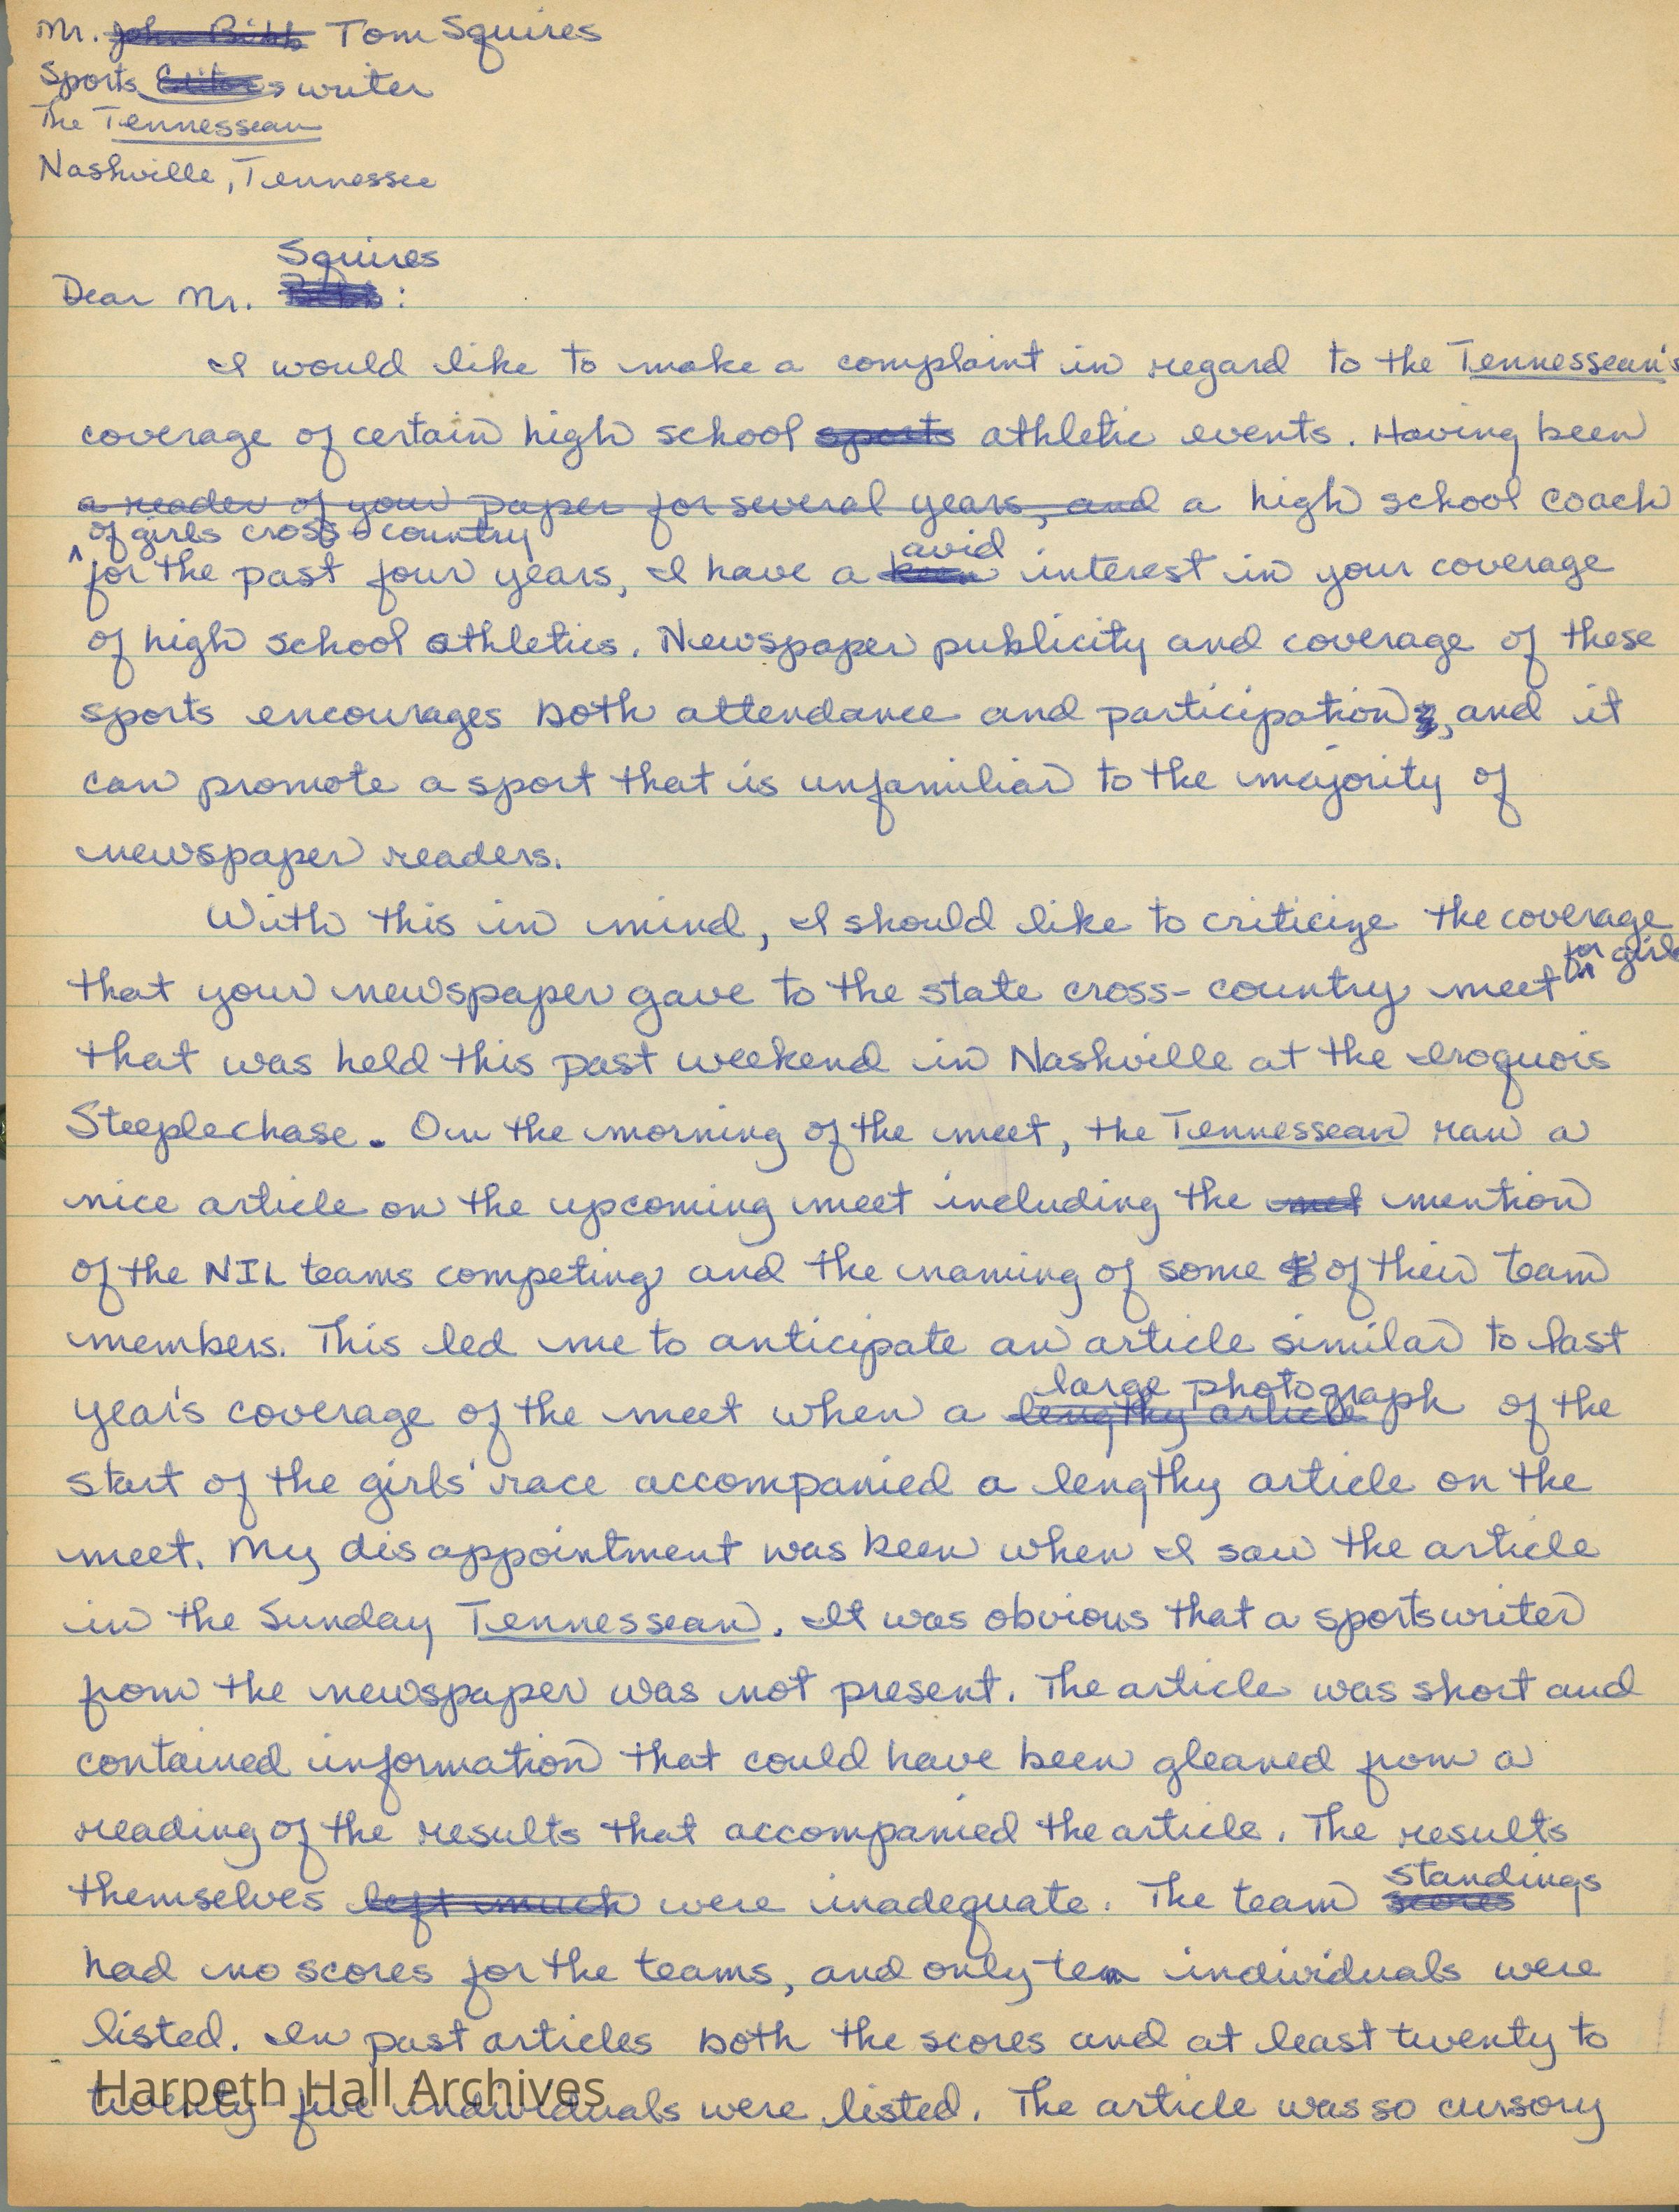 Mr. ~~John Bibb~~ Tom Squires
Sports ~~Editor~~ writer
The Tennessean
Nashville, Tennessee
Squires
Dear Mr. ~~Bibb~~:
I would like to make a complaint in regard to the Tennessean's
coverage of certain high school ~~sports~~ athletic events. Having been
~~a reader of your paper for several years, and~~ a high school coach
of girls cross-country
^for the past four years, I have a ~~keen~~ avid interest in your coverage
of high school athletics. Newspaper publicity and coverage of these
sports encourages both attendance and participation, and it
can promote a sport that is unfamiliar to the majority of
newspaper readers.
With this in mind, I should like to criticize the coverage
that your newspaper gave to the state cross-country meet for girls
that was held this past weekend in Nashville at the Iroquois
Steeplechase. On the morning of the meet, the Tennessean ran a
nice article on the upcoming meet including the ~~met~~ mention
of the NIL teams competing and the naming of some of their team
members. This led me to anticipate an article similar to last
year's coverage of the meet when a ~~lengthy article~~ large photograph of the
start of the girls' race accompanied a lengthy article on the
meet. My disappointment was keen when I saw the article
in the Sunday Tennessean. It was obvious that a sportswriter
from the newspaper was not present. The article was short and
contained information that could have been gleaned from a
reading of the results that accompanied the article. The results
themselves ~~left much~~ were inadequate. The team ~~scores~~ standings
had no scores for the teams, and only ten individuals were
listed. In past articles both the scores and at least twenty to
twenty-five individuals were listed. The article was so cursory
Harpeth Hall Archives